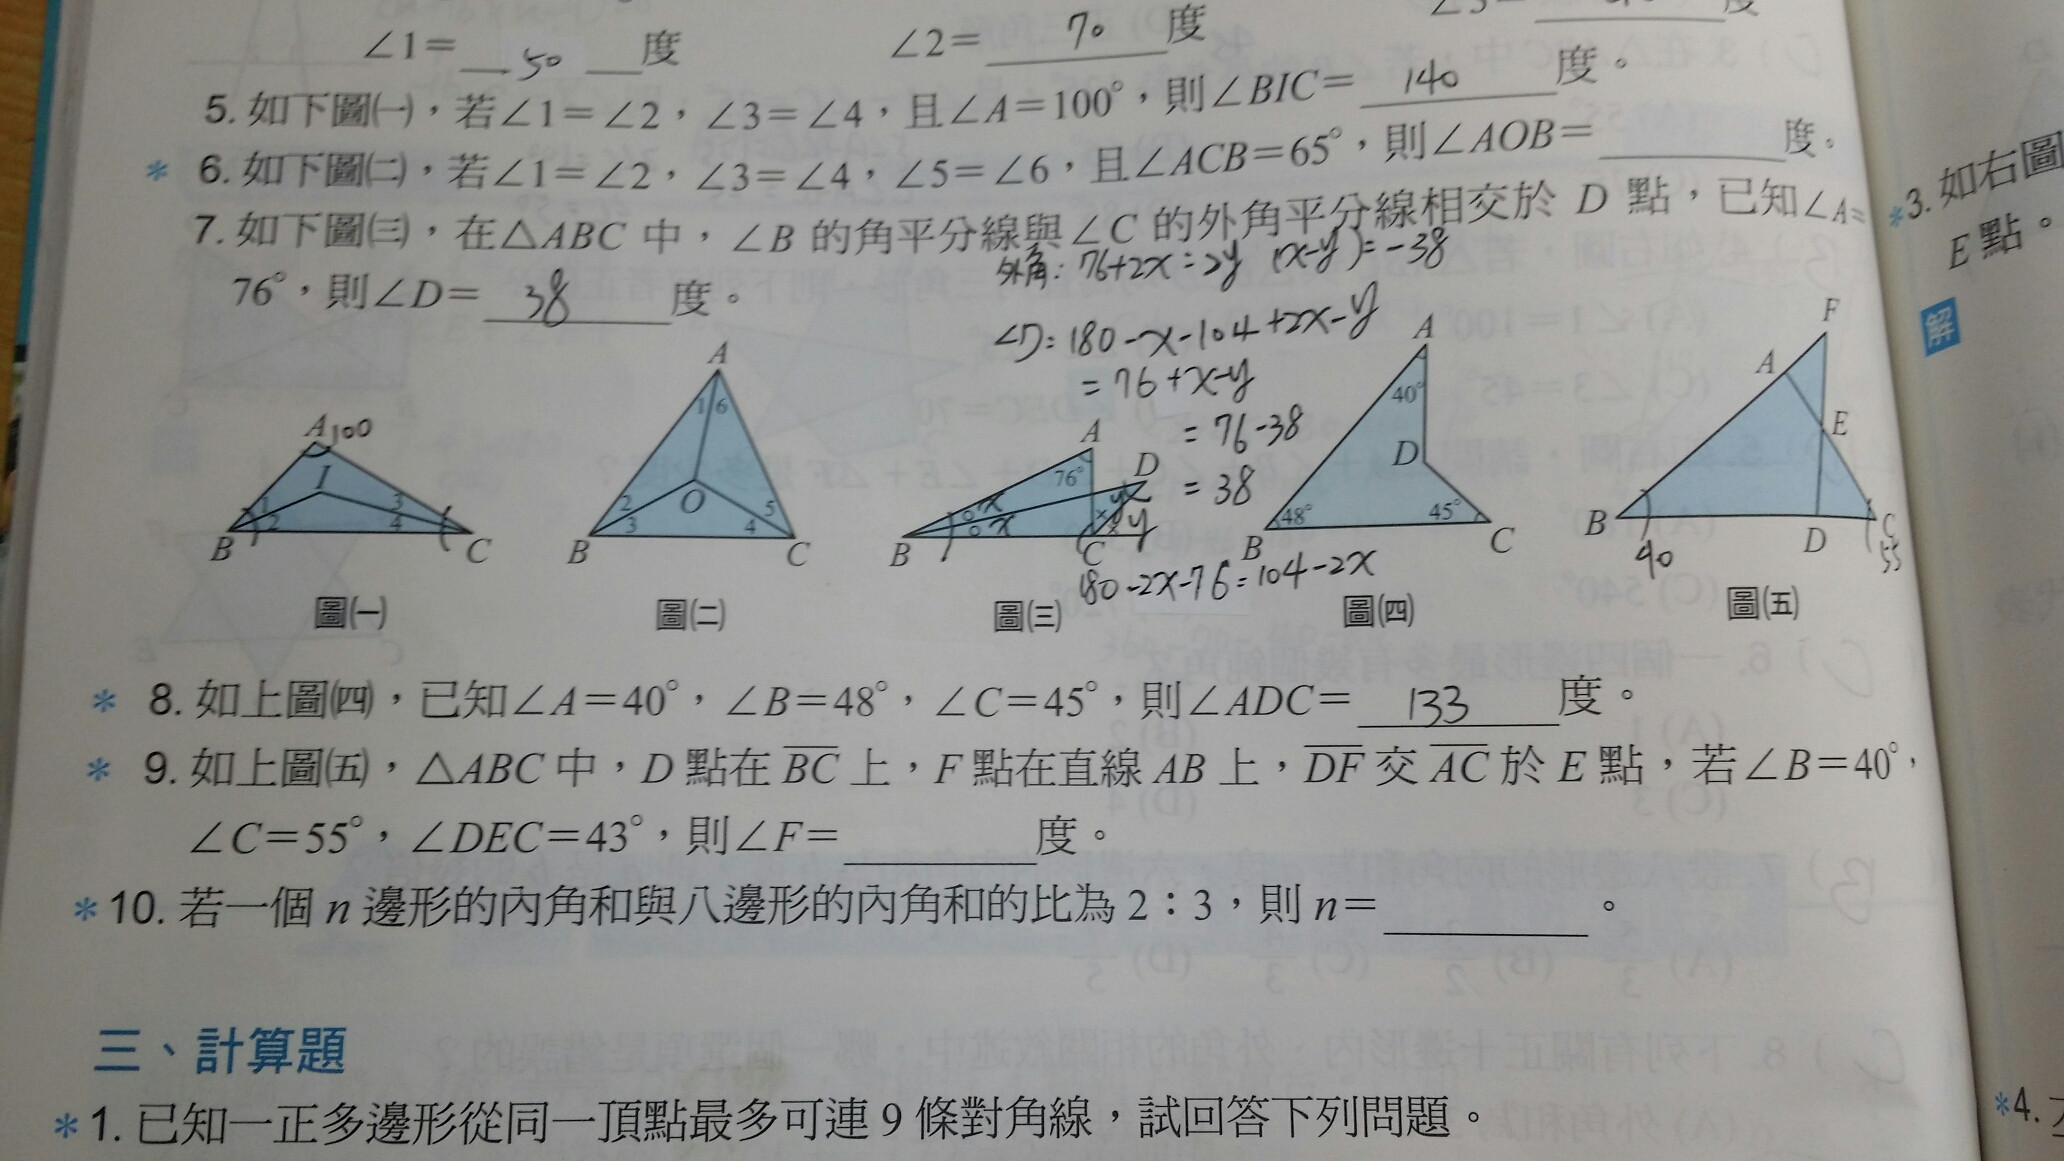 ∠1= 50 度 ∠2= 70 度 度
5. 如下圖㈠，若∠1=∠2，∠3=∠4，且∠A=100°，則∠BIC= 140 度。
* 6. 如下圖㈡，若∠1=∠2，∠3=∠4，∠5=∠6，且∠ACB=65°，則∠AOB=______度。
7. 如下圖㈢，在△ABC 中，∠B 的角平分線與∠C 的外角平分線相交於 D 點，已知∠A=
76°，則∠D= 38 度。
外角: 76+2x=2y (x-y)=-38
∠D: 180-x-104+2x-y
=76+x-y
=76-38
=38
A 100 I 1 2 3 4 B C
圖㈠
A 1 6 2 3 O 5 4 B C
圖㈡
A 76° D x x y y B C
180-2x-76=104-2x
圖㈢
A 40° D 48° 45° B C
圖㈣
F A E B 40 D C 55
圖㈤
* 8. 如上圖㈣，已知∠A=40°，∠B=48°，∠C=45°，則∠ADC= 133 度。
* 9. 如上圖㈤，△ABC 中，D 點在 BC 上，F 點在直線 AB 上，DF 交 AC 於 E 點，若∠B=40°，
∠C=55°，∠DEC=43°，則∠F=______度。
* 10. 若一個 n 邊形的內角和與八邊形的內角和的比為 2：3，則 n=______。
三、計算題
* 1. 已知一正多邊形從同一頂點最多可連 9 條對角線，試回答下列問題。
*3. 如右圖
E 點。
解
*4.